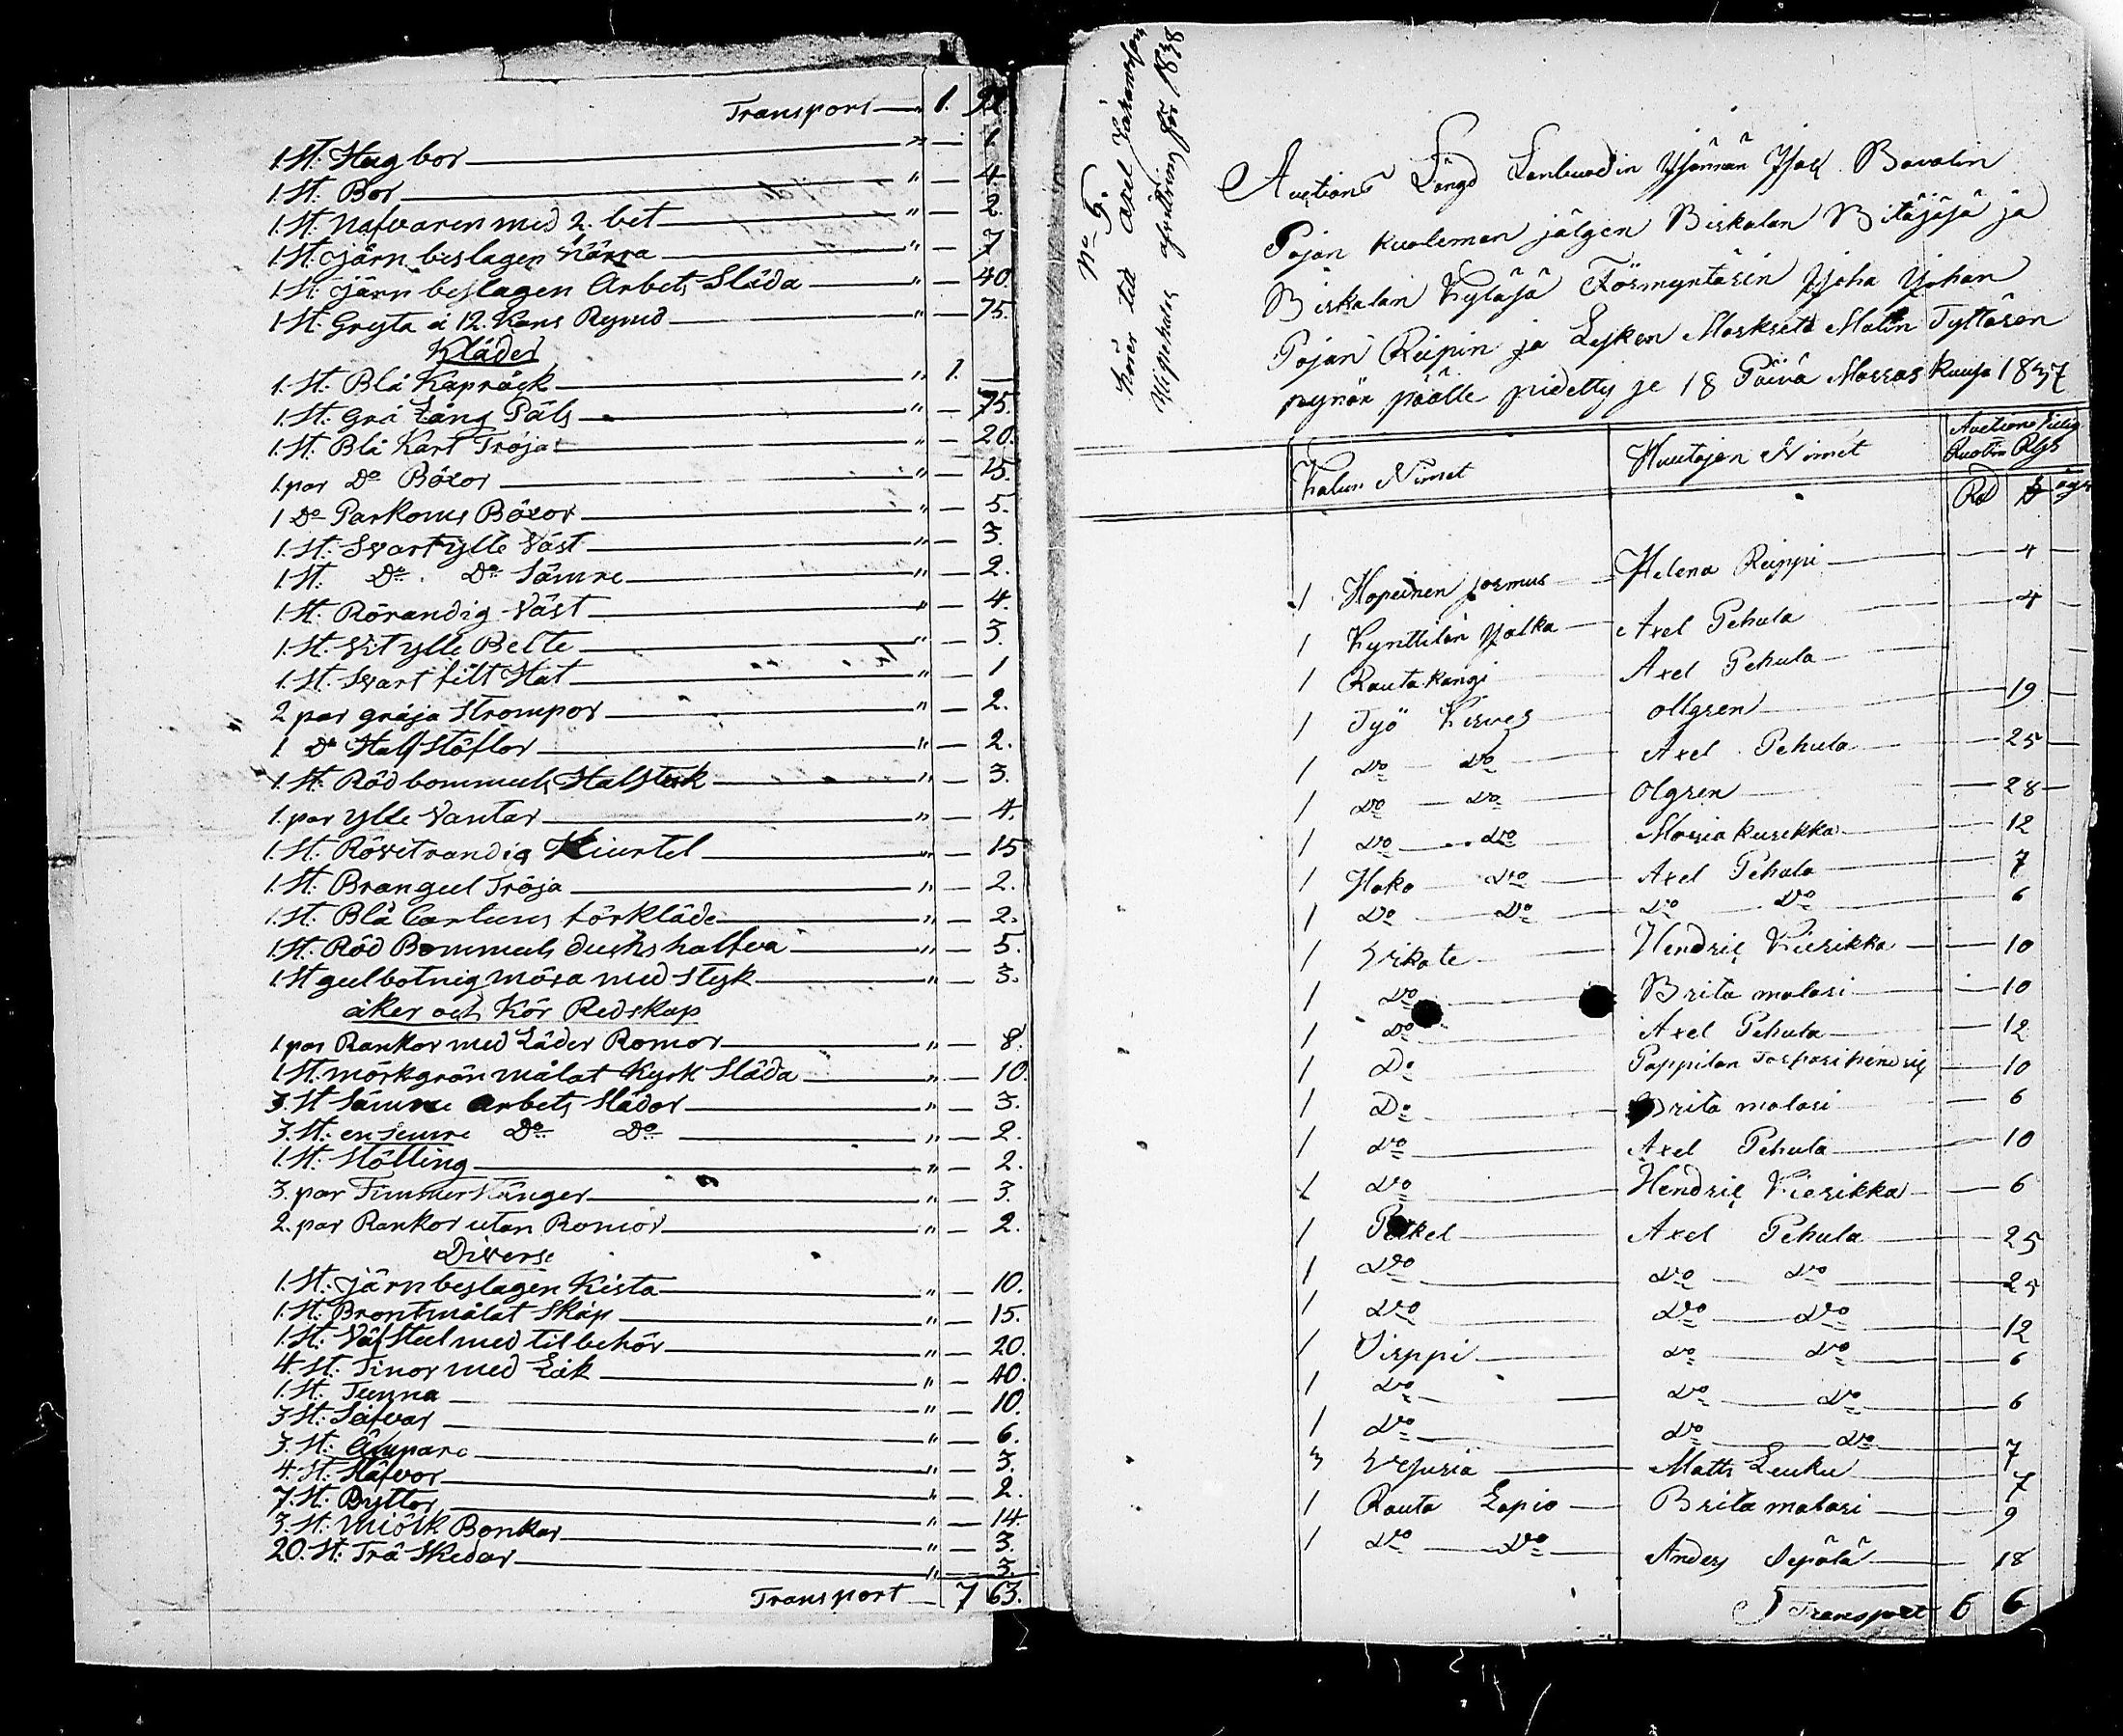 Transport — " 1. 94.
1. St: Hugbor — " — 1
1. St. Bor — " — 4.
1. St. Nafvaren med 2. bet — " — 2.
1. St. järn beslagen Kärra — " — 7
1. St. järn beslagen Arbets Släda — " — 40.
1. St: Gryta á 12. Kans Rymd — " — 75.
Kläder
1. St. Blå Kapråck — " 1. —
1. St. Grå Lång Päls — " — 75.
1. St. Blå Kort Tröja — " — 20.
1. par Do Böxor — " — 15.
1 Do Parkoms Böxor — " — 5.
1. St: Svart ylle Väst — " — 3.
1. St. Do Do Sämre — " — 2.
1. St. Rörandig Väst — " — 4.
1. St. Vit ylle Belte — " — 3.
1. St. Svart filt Hat — " — 1
2 par gråja Strompor — " — 2.
1. Do Half Stöflor — " — 2.
1. St. Röd bommuls Halsduk — " — 3.
1. par ylle Vantar — " — 4.
1. St. Rövitrandig Kiurtel — " — 15
1. St: Brangul Tröja — " — 2.
1. St. Blå Cartuns förkläde — " — 2.
1. St. Röd Bommuls duchs halfva — " — 5.
1. St gulbotnig mösa med Styk — " — 3.
åker och Kör Redskap
1. par Rankor med Läder Romor — " — 8.
1. St. mörkgrön målat Kyrk Släda — " — 10.
3. St Sämre Arbets Slädor — " — 3.
3. St: en Semre Do Do — " — 2.
1. St. Stötting — " — 2.
3. par Timmer Stänger — " — 3.
2. par Rankor utan Romor — " — 2.
Diverse
1. St. järnbeslagen Kista — " — 10.
1. St. Bront målat Skåp — " — 15.
1. St: Väf Stul med tilbehör — " — 20.
4. St. Tinor med Låk — " — 40.
1. St. Tunna — " — 10.
3 St: Såfvar — " — 6.
3. St. Ämpare — " — 3.
4. St. Stäfvor — " — 2.
7. St. Byttor — " — 14.
3. St: Miölk Bonkar — " — 3.
20. St: Trä Skedar — " — 3.
Transport — 7 63.
No 5.
hörer till Axel
för 1838
Auctions Längd Lanbuodin Ysännän Ysak Bavalin
Pojan kuoleman jälgen Biskalan Bitäjäsä ja
Biskalan Kyläsä Förmyntärin Yoha Yohan
Pojan Reipin ja Lesken Markreta Malin Tyttären
pynön päälle pidetty je 18 Päivä Marras kuusa 1837
Kalun Nimet Huutajan Nimet Auctions
Ruotin Rgs
Rd ß
1 Hopeinen sormus — Helena Reippi — 4 —
1 Kynttilän Yalka — Axel Pehula — 4 —
1 Rauta kangi Axel Pehula —
1 Työ Kirves Ollgren — 19 —
1 Do — Do Axel Pehula — 25 —
1 Do — Do Olgren — 28 —
1 Do — Do Maria Kurikka — 12
1 Hako Do Axel Pehula — 7
1 Do — Do — Do Do — 6
1 Vikate — Hendric Kierikka — 10
1 Do — Brita malari — 10
1 Do — Axel Pehula — 12
1 Do Pappilan Torpari hendric — 10
1 Do — Brita malari — 6
1 Do — Axel Pehula — 10
1 Do — Hendric Kierikka — 6
1 Petkel — Axel Pehula — 25
1 Do — Do — Do — 25
1 Do — Do — Do — 12
1 Sirppi — Do — Do — 6
1 Do — Do — Do — 6
1 Do — Do — Do — 7
3 — Matts Leuku — 7
1 Rauta Lapio — Brita malari — 9
1 Do — Do — Anders Sepälä — 18
Transport 6 6